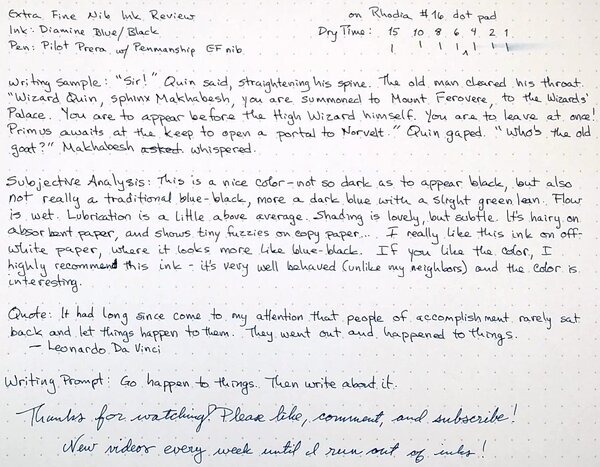 Extra Fine Nib Ink Review on Rhodia #16 dot pad
Ink: Diamine Blue/Black Dry Time: 15 10 8 6 4 2 1
Pen: Pilot Prera w/ Penmanship EF nib
Writing Sample: "Sir!" Quin said, straightening his spine. The old man cleared his throat.
"Wizard Quin, sphinx Makhabesh, you are summoned to Mount Ferovere, to the Wizards'
Palace. You are to appear before the High Wizard himself. You are to leave at once!
Primus awaits at the keep to open a portal to Norvelt." Quin gaped. "Who's the old
goat?" Makhabesh asked whispered.
Subjective Analysis: This is a nice color - not so dark as to appear black, but also
not really a traditional blue-black, more a dark blue with a slight green lean. Flow
is wet. Lubrication is a little above average. Shading is lovely, but subtle. It's hairy on
absorbent paper, and shows tiny fuzzies on copy paper... I really like this ink on off-
white paper, where it looks more like blue-black. If you like the color, I
highly recommend this ink - it's very well behaved (unlike my neighbors) and the color is
interesting.
Quote: It had long since come to my attention that people of accomplishment rarely sat
back and let things happen to them. They went out and happened to things.
- Leonardo Da Vinci
Writing Prompt: Go happen to things. Then write about it.
Thanks for watching! Please like, comment, and subscribe!
New videos every week until I run out of inks!